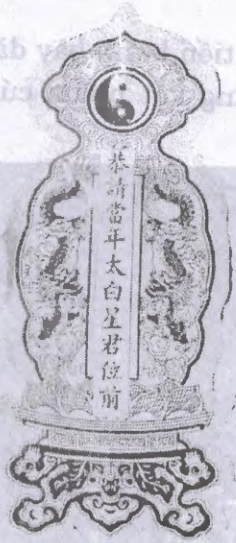 恭請當年太白星君位前